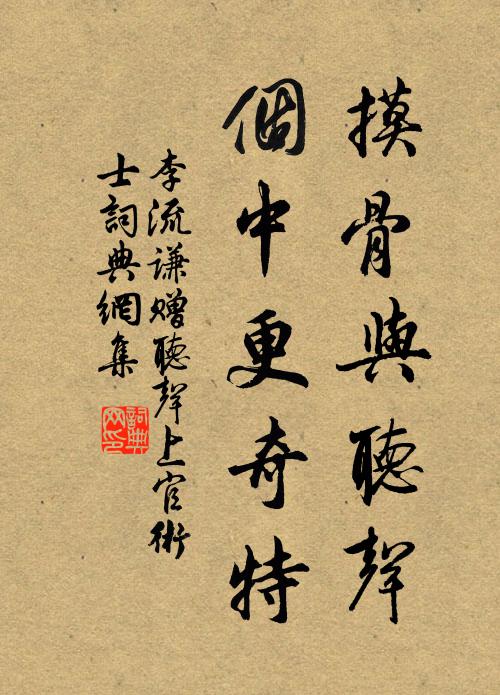 摸骨與聽聲
個中更奇特
李流謙贈聽聲上官術
士詞典網集
詞典
网印